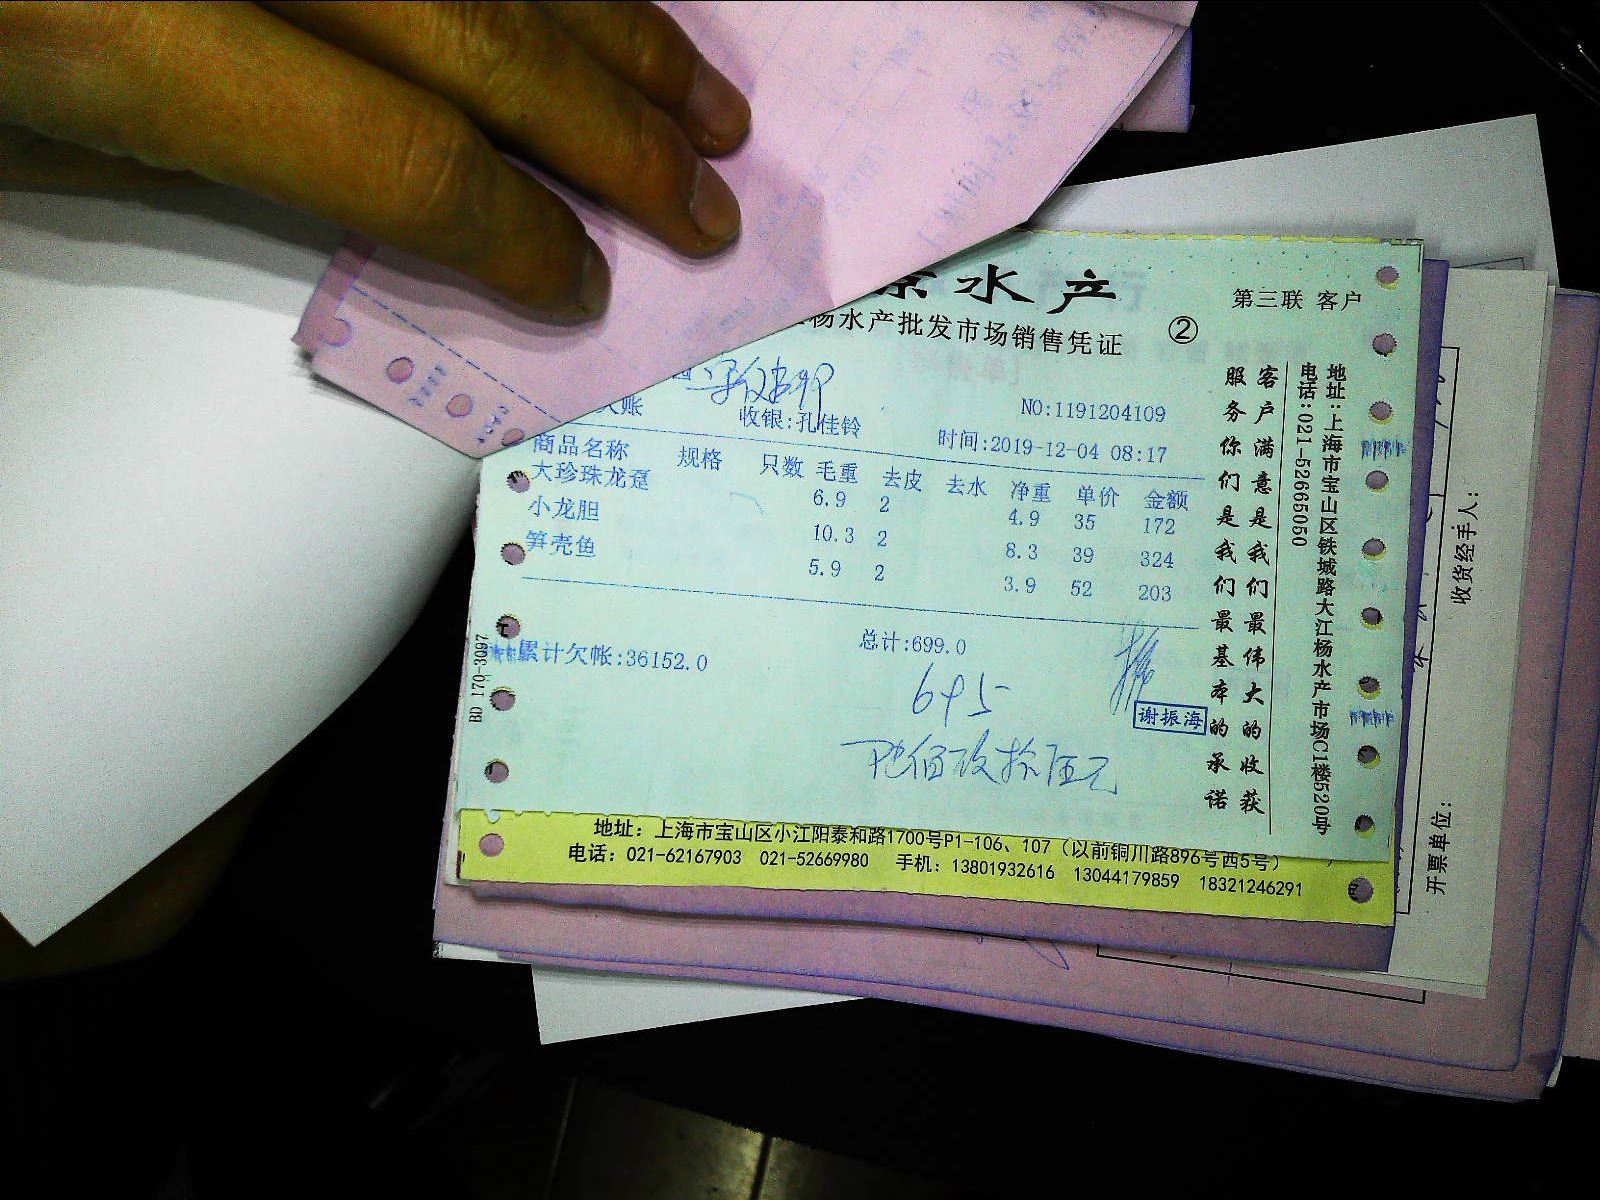 京水产
第三联 客户
杨水产批发市场销售凭证 ②
欠账 收银:孔佳铃 NO:1191204109
时间:2019-12-04 08:17
商品名称 规格 只数 毛重 去皮 去水 净重 单价 金额
大珍珠龙趸 6.9 2 4.9 35 172
小龙胆 10.3 2 8.3 39 324
笋壳鱼 5.9 2 3.9 52 203
累计欠帐:36152.0 总计:699.0
695
谢振海
陆佰玖拾伍元
BD 170-3097
客户满意是我们最伟大的收获
服务你们是我们最基本的承诺
地址:上海市宝山区铁城路大江杨水产市场C1楼520号
电话:021-52665050
地址：上海市宝山区小江阳泰和路1700号P1-106、107（以前铜川路896号西5号）
电话：021-62167903 021-52669980 手机：13801932616 13044179859 18321246291
收货经手人：
开票单位：